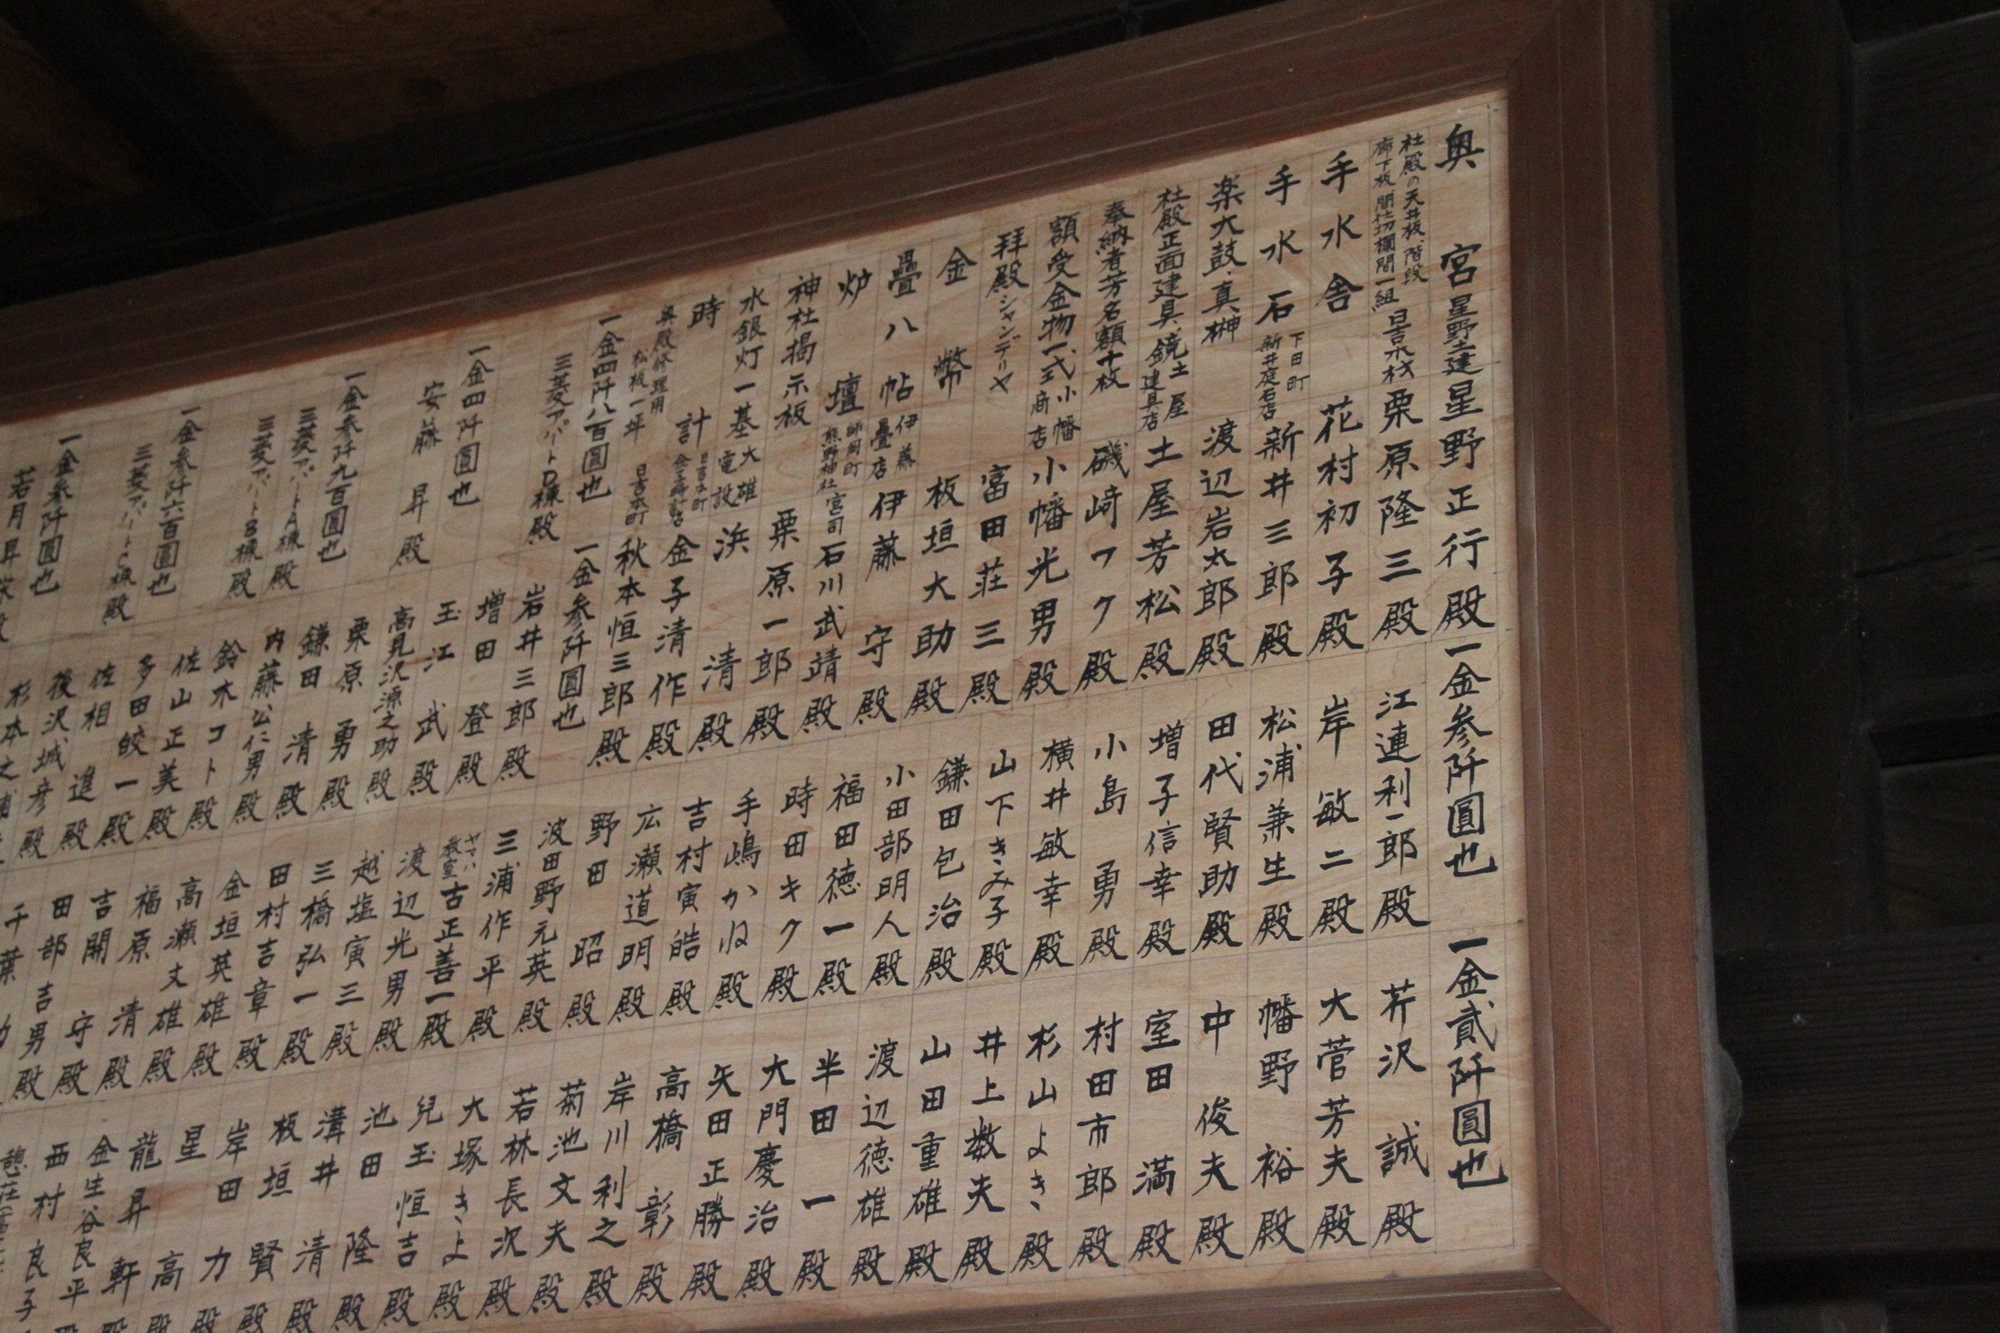 奥宮 星野土建 星野正行殿
社殿の天井板、階段 廊下板、間仕切欄間一組 日吉木材 栗原隆三殿
手水舎 花村初子殿
手水石 下田町 新井庭石店 新井三郎殿
楽太鼓・真榊 渡辺岩太郎殿
社殿正面建具、鏡 土屋建具店 土屋芳松殿
奉納者芳名額十枚 磯崎フク殿
額受金物一式 小幡商店 小幡光男殿
拝殿シャンデリヤ 富田荘三殿
金幣 板垣大助殿
畳八帖 伊藤畳店 伊藤守殿
炉壇 師岡町 熊野神社 宮司 石川武靖殿
神社掲示板 栗原一郎殿
水銀灯一基 大雄電設 浜清殿
時計 金子清作殿
奥殿修理用 松板一坪 日吉本町 秋本恒三郎殿
一金四阡八百圓也
三菱アパートD棟殿
一金四阡圓也
安藤昇殿
一金参阡九百圓也
三菱アパートA棟殿
三菱アパートB棟殿
一金参阡六百圓也
三菱アパートC棟殿
一金参阡圓也
一金参阡圓也
岩井三郎殿
増田登殿
玉江武殿
高見沢源之助殿
栗原勇殿
鎌田清殿
内藤公仁男殿
鈴木コト殿
佐山正美殿
多田皎一殿
佐相進殿
後沢城彦殿
一金参阡圓也
江連利一郎殿
岸敏二殿
松浦兼生殿
田代賢助殿
増子信幸殿
小島勇殿
横井敏幸殿
山下きみ子殿
鎌田包治殿
小田部明人殿
福田徳一殿
時田キク殿
手嶋かね殿
吉村寅皓殿
広瀬道明殿
野田昭殿
波田野元英殿
三浦作平殿
ヤマハ教室 古正善一殿
渡辺光男殿
越塩寅三殿
三橋弘一殿
田村吉章殿
金垣英雄殿
高瀬丈雄殿
福原清殿
吉開守殿
田部吉男殿
一金貳阡圓也
芹沢誠殿
大菅芳夫殿
幡野裕殿
中俊夫殿
室田満殿
村田市郎殿
杉山よきゝ殿
井上数夫殿
山田重雄殿
渡辺徳雄殿
半田一殿
大門慶治殿
矢田正勝殿
高橋彰殿
岸川利之殿
菊池文夫殿
若林長次殿
大塚きよ殿
兒玉恒吉殿
池田隆殿
溝井清殿
板垣賢殿
岸田力殿
星高殿
龍昇軒殿
金生谷良平殿
西村良子